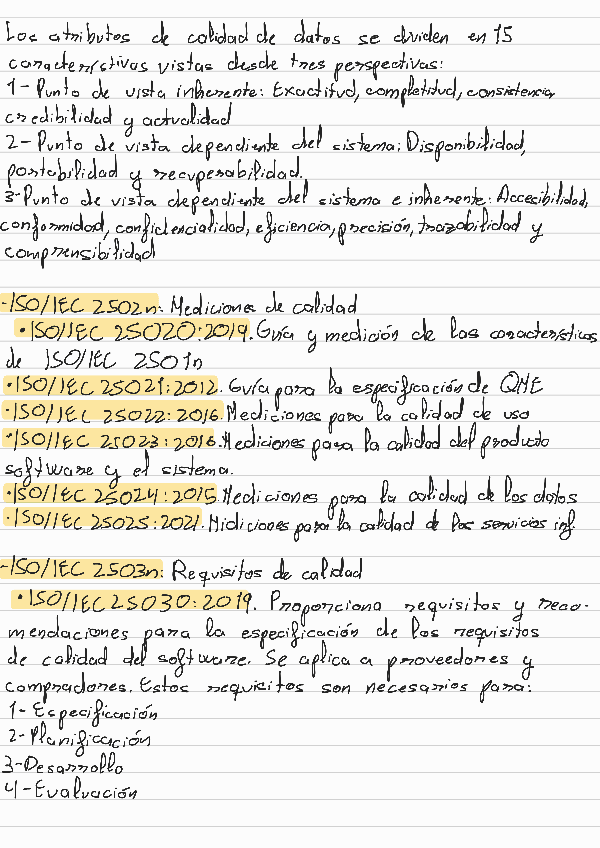 Los atributos de calidad de datos se dividen en 15
características vistas desde tres perspectivas:
1-Punto de vista inherente: Exactitud, completitud, consistencia,
credibilidad y actualidad
2-Punto de vista dependiente del sistema: Disponibilidad,
portabilidad y recuperabilidad.
3-Punto de vista dependiente del sistema e inherente: Accecibilidad,
conformidad, confidencialidad, eficiencia, precisión, trazabilidad y
comprensibilidad
-ISO/IEC 2502n: Mediciones de calidad
•ISO/IEC 25020:2019. Guía y medición de las características
de ISO/IEC 2501n
•ISO/IEC 25021:2012. Guía para la especificación de QME
•ISO/IEC 25022:2016. Mediciones para la calidad de uso
•ISO/IEC 25023:2016. Mediciones para la calidad del producto
software y el sistema.
•ISO/IEC 25024:2015. Mediciones para la calidad de los datos
•ISO/IEC 25025:2021. Midiciones para la calidad de los servicios inf.
-ISO/IEC 2503n: Requisitos de calidad
•ISO/IEC 25030:2019. Proporciona requisitos y reco-
mendaciones para la especificación de los requisitos
de calidad del software. Se aplica a proveedores y
compradores. Estos requisitos son necesarios para:
1-Especificación
2-Planificación
3-Desarrollo
4-Evaluación